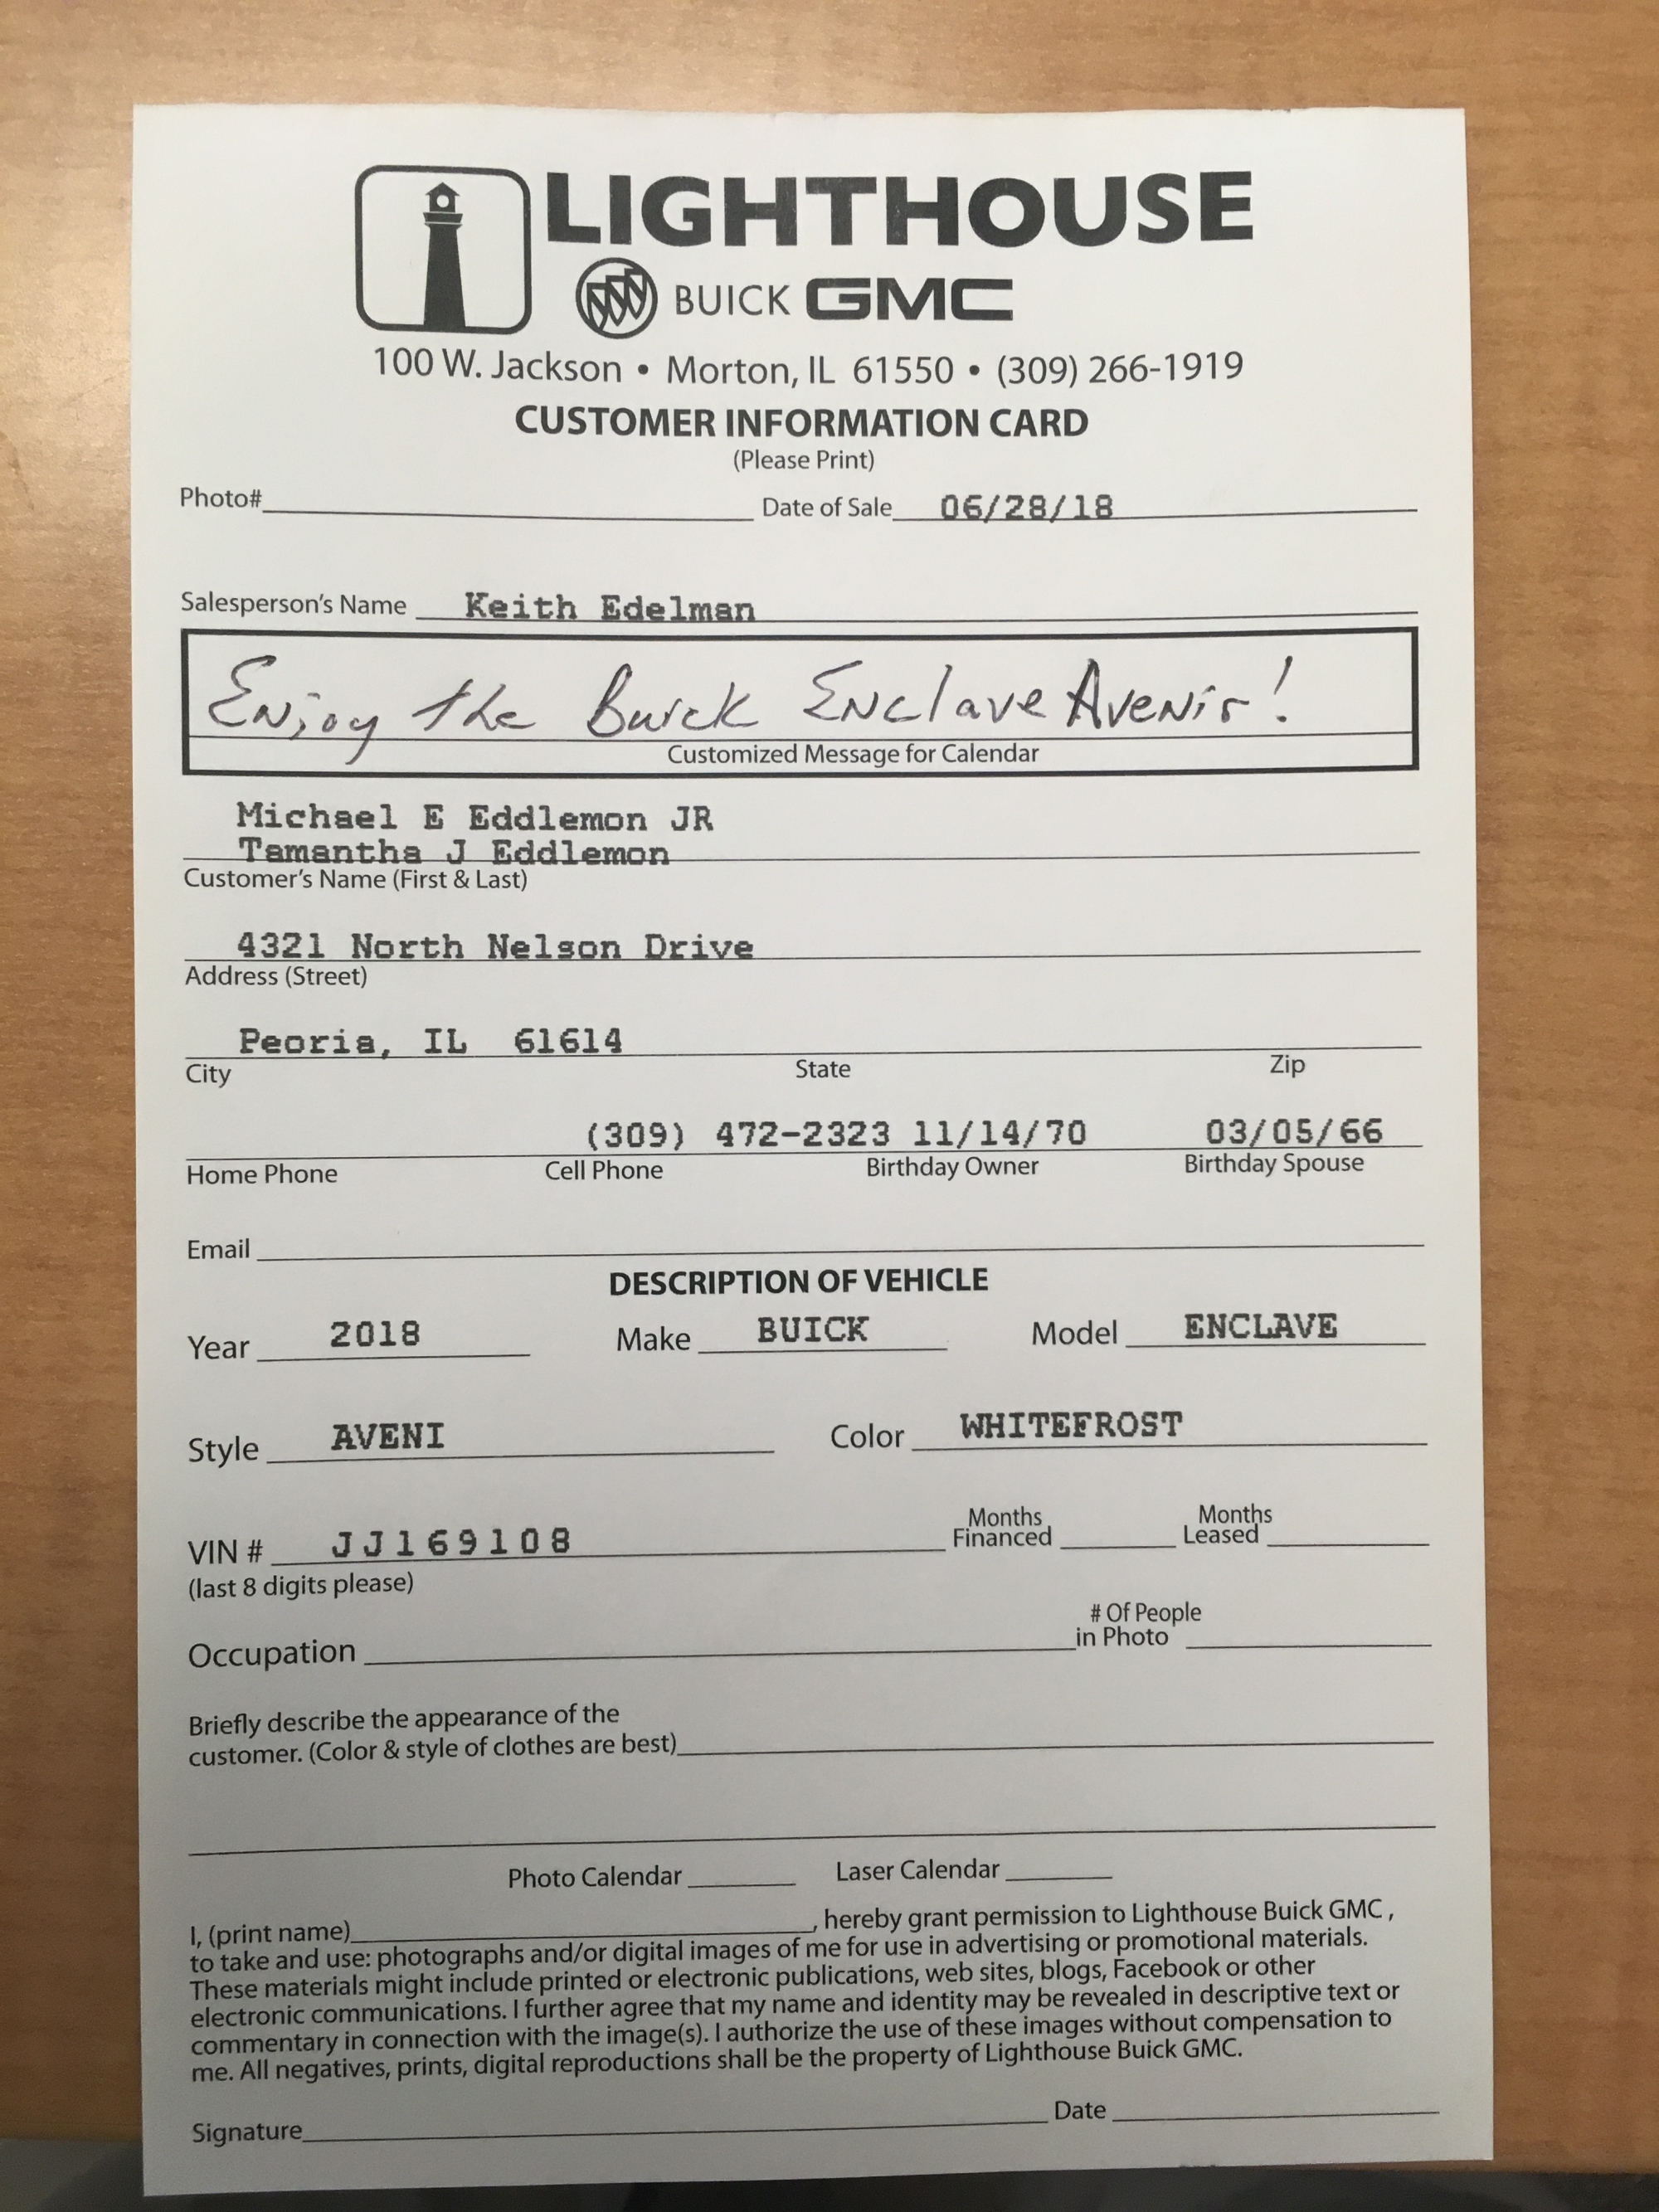 LIGHTHOUSE
BUICK GMC
100 W. Jackson • Morton, IL 61550 • (309) 266-1919
CUSTOMER INFORMATION CARD
(Please Print)
Photo# Date of Sale 06/28/18
Salesperson's Name Keith Edelman
Enjoy the Buick Enclave Avenir!
Customized Message for Calendar
Michael E Eddlemon JR
Tamantha J Eddlemon
Customer's Name (First & Last)
4321 North Nelson Drive
Address (Street)
Peoria, IL 61614
City State Zip
(309) 472-2323 11/14/70 03/05/66
Home Phone Cell Phone Birthday Owner Birthday Spouse
Email
DESCRIPTION OF VEHICLE
Year 2018 Make BUICK Model ENCLAVE
Style AVENI Color WHITEFROST
VIN # JJ169108 Months Financed Months Leased
(last 8 digits please)
Occupation # Of People in Photo
Briefly describe the appearance of the
customer. (Color & style of clothes are best)
Photo Calendar Laser Calendar
I, (print name) , hereby grant permission to Lighthouse Buick GMC ,
to take and use: photographs and/or digital images of me for use in advertising or promotional materials.
These materials might include printed or electronic publications, web sites, blogs, Facebook or other
electronic communications. I further agree that my name and identity may be revealed in descriptive text or
commentary in connection with the image(s). I authorize the use of these images without compensation to
me. All negatives, prints, digital reproductions shall be the property of Lighthouse Buick GMC.
Signature Date